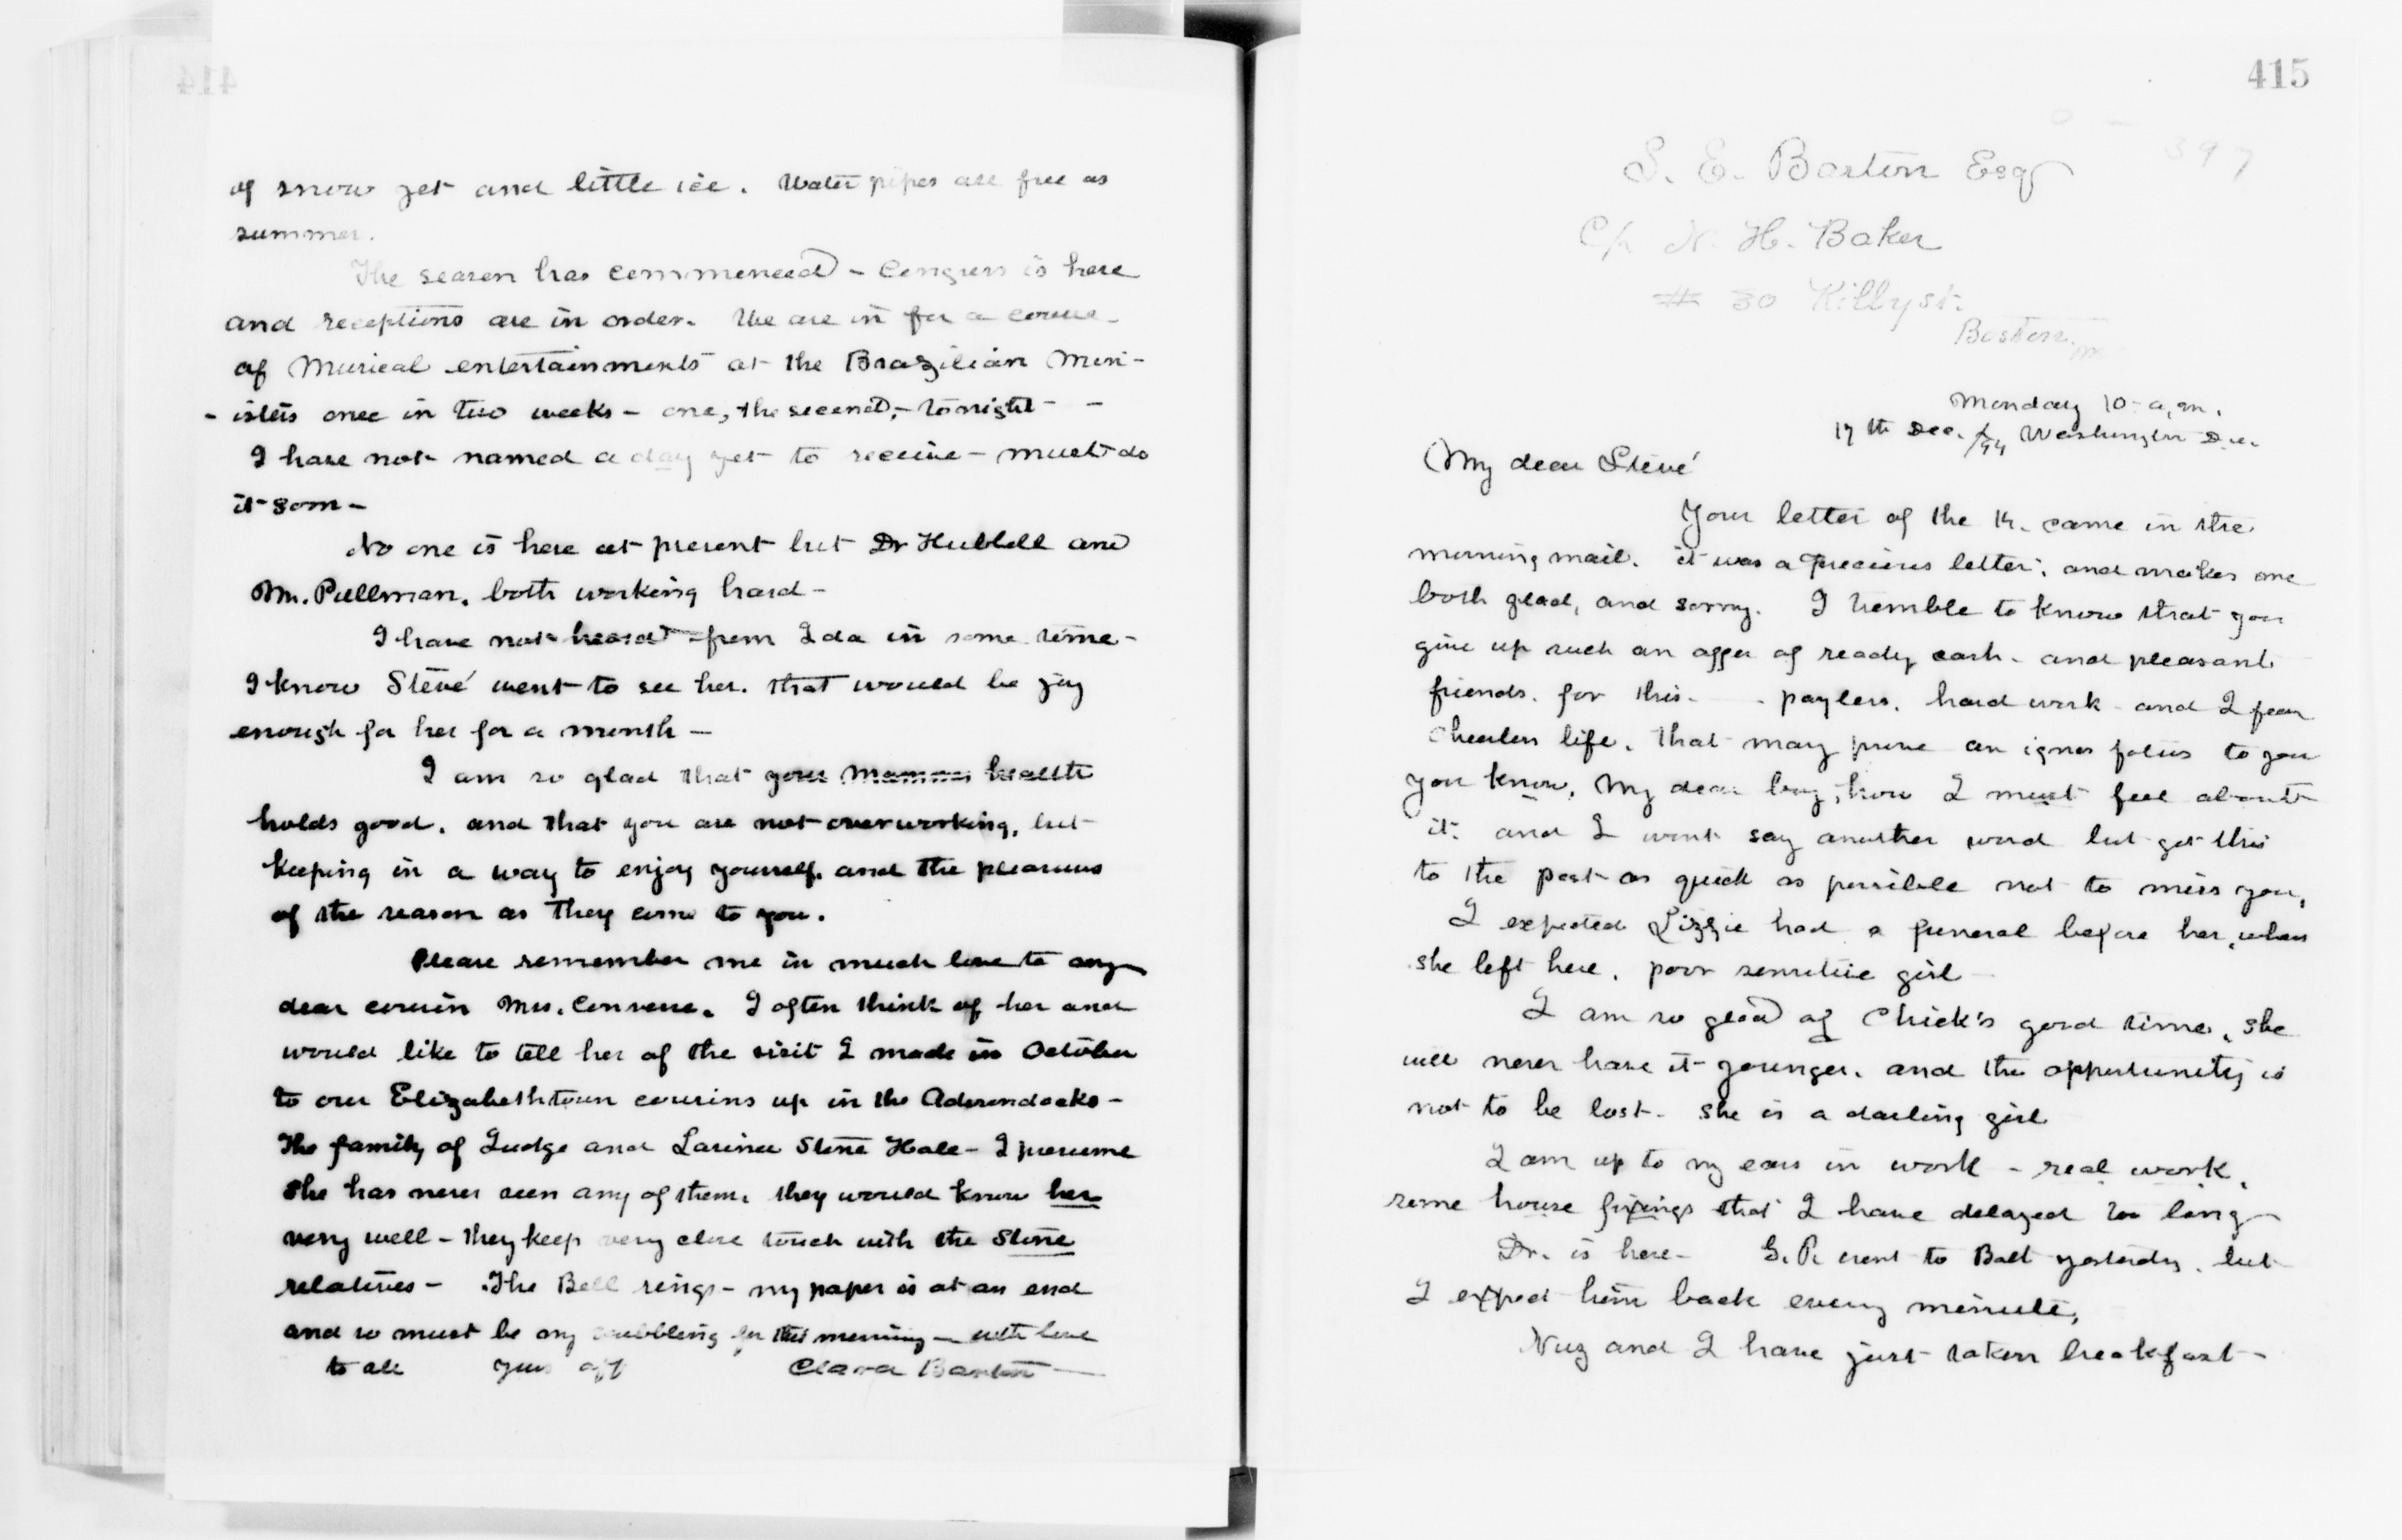 414
of snow yet and little ice. Water pipes are free as
summer.
The season has commenced - Congress is here
and receptions are in order. We are in for a course
of Musical entertainments at the Brazilian Min-
-isters once in two weeks - one, the second, - tonight - -
I have not named a day yet to receive - must do
it soon -
No one is here at present but Dr Hubbell and
Mr. Pullman, both working hard -
I have not heard from Ida in some time -
I know Stevé went to see her. that would be joy
enough for her for a month -
I am so glad that your Mammas health
holds good, and that you are not overworking, but
keeping in a way to enjoy yourself, and the pleasures
of the season as they come to you.
Please remember me in much love to my
dear cousin Mrs. Converse. I often think of her and
would like to tell her of the visit I made in October
to our Elizabethtown cousins up in the Adirondacks -
The family of Judge and Lavinia Stone Hale - I presume
she has never seen any of them, they would know her
very well - they keep very close touch with the Stone
relatives - The Bell rings - my paper is at an end
and so must be my scribbling for this morning - with love
to all yours aff Clara Barton
415
397
S. E. Barton Esq
C/o N. H. Baker
# 30 Kilby st.
Boston
Monday 10 - a.m.
17th Dec. /94 Washington D.C.
My dear Stevé
Your letter of the 14. came in the
morning mail. it was a precious letter, and makes me
both glad, and sorry. I tremble to know that you
give up such an offer of ready cash - and pleasant
friends, for this - - payless, hard work - and I fear
cheerless life, that may prove an ignes fatus to you
you know, my dear boy, how I must feel about
it. and I wont say another word but get this
to the post as quick as possible not to miss you,
I expected Lizzie had a funeral before her, when
she left here, poor sensitive girl -
I am so glad of Chick's good time, she
will never have it younger, and the opportunity is
not to be lost - she is a darling girl
I am up to my ears in work - real work,
some house fixings that I have delayed too long
Dr. is here - G. P. went to Balt yesterday, but
I expect him back every minute,
Nug and I have just taken breakfast -